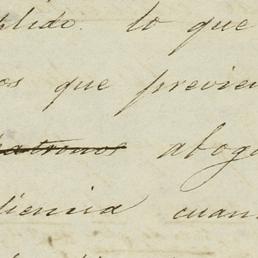 plido. lo que
os que previen
patronos aboga
diencia cuan